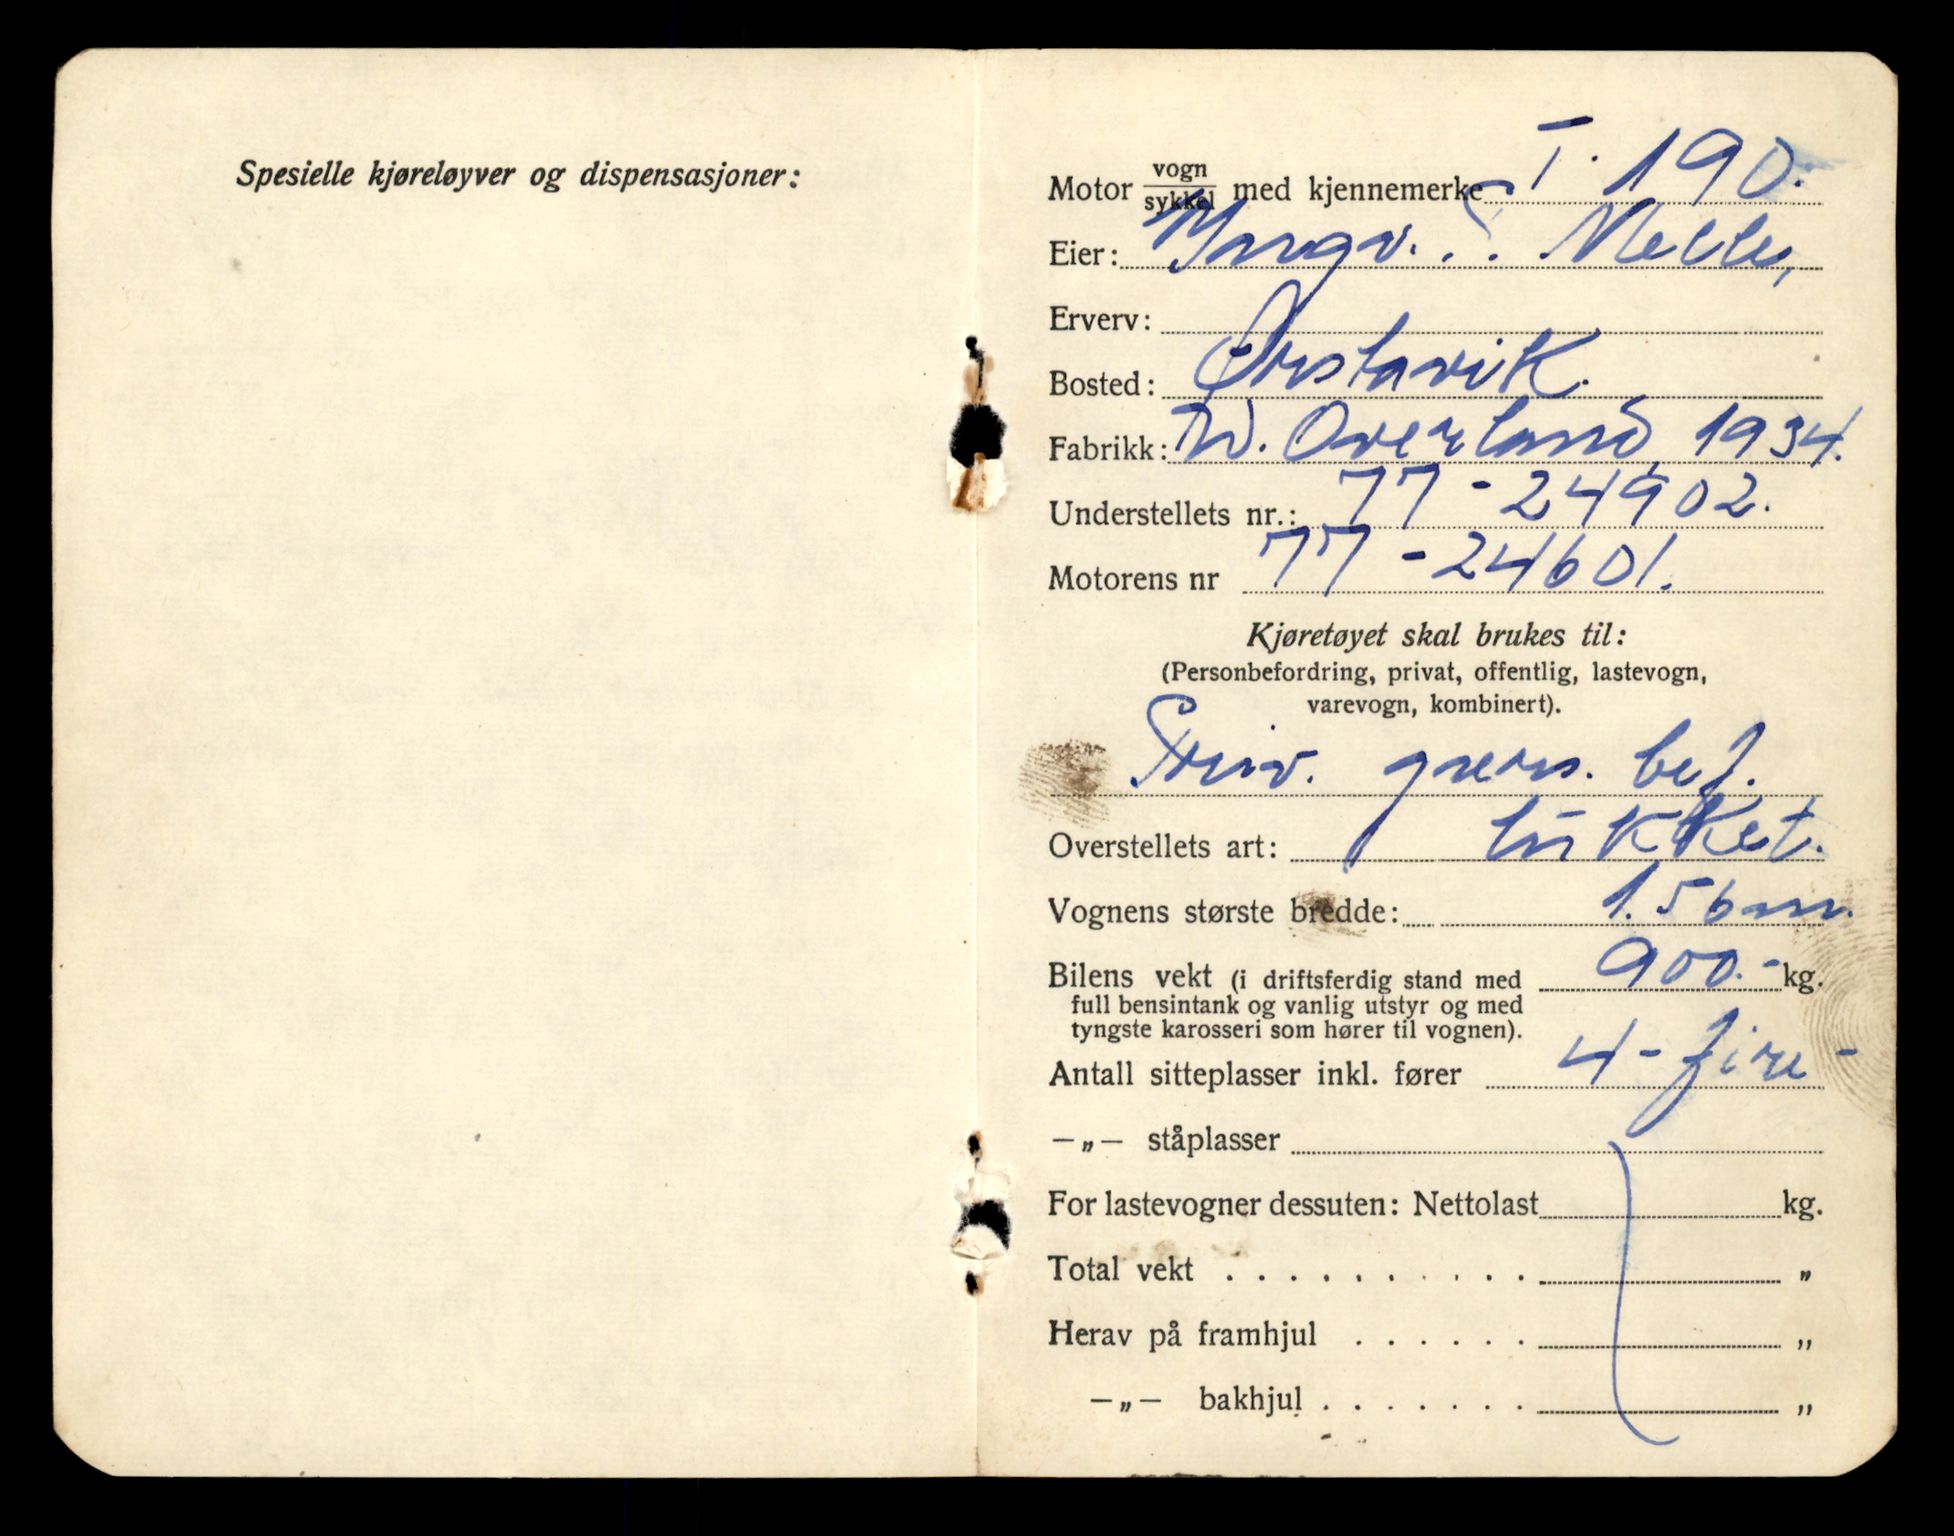 Spesielle kjøreløyver og dispensasjoner:
Motor vogn/sykkel med kjennemerke T. 190.
Eier: Yngv. Melle,
Erverv:
Bosted: Ørstavik.
Fabrikk: W. Overland, 1934.
Understellets nr.: 77-24902.
Motorens nr 77-24601.
Kjøretøyet skal brukes til:
(Personbefordring, privat, offentlig, lastevogn,
varevogn, kombinert).
Priv. pers. bef.
Overstellets art: lukket.
Vognens største bredde: 1.56 m.
Bilens vekt (i driftsferdig stand med 900.- kg.
full bensintank og vanlig utstyr og med
tyngste karosseri som hører til vognen).
Antall sitteplasser inkl. fører 4 - fire -
—„— ståplasser
For lastevogner dessuten: Nettolast kg.
Total vekt . . . . . . . . . . „
Herav på framhjul . . . . . . „
—„— bakhjul . . . . . . . „